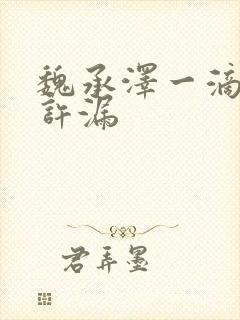 魏承澤一滴
許漏
君弄墨